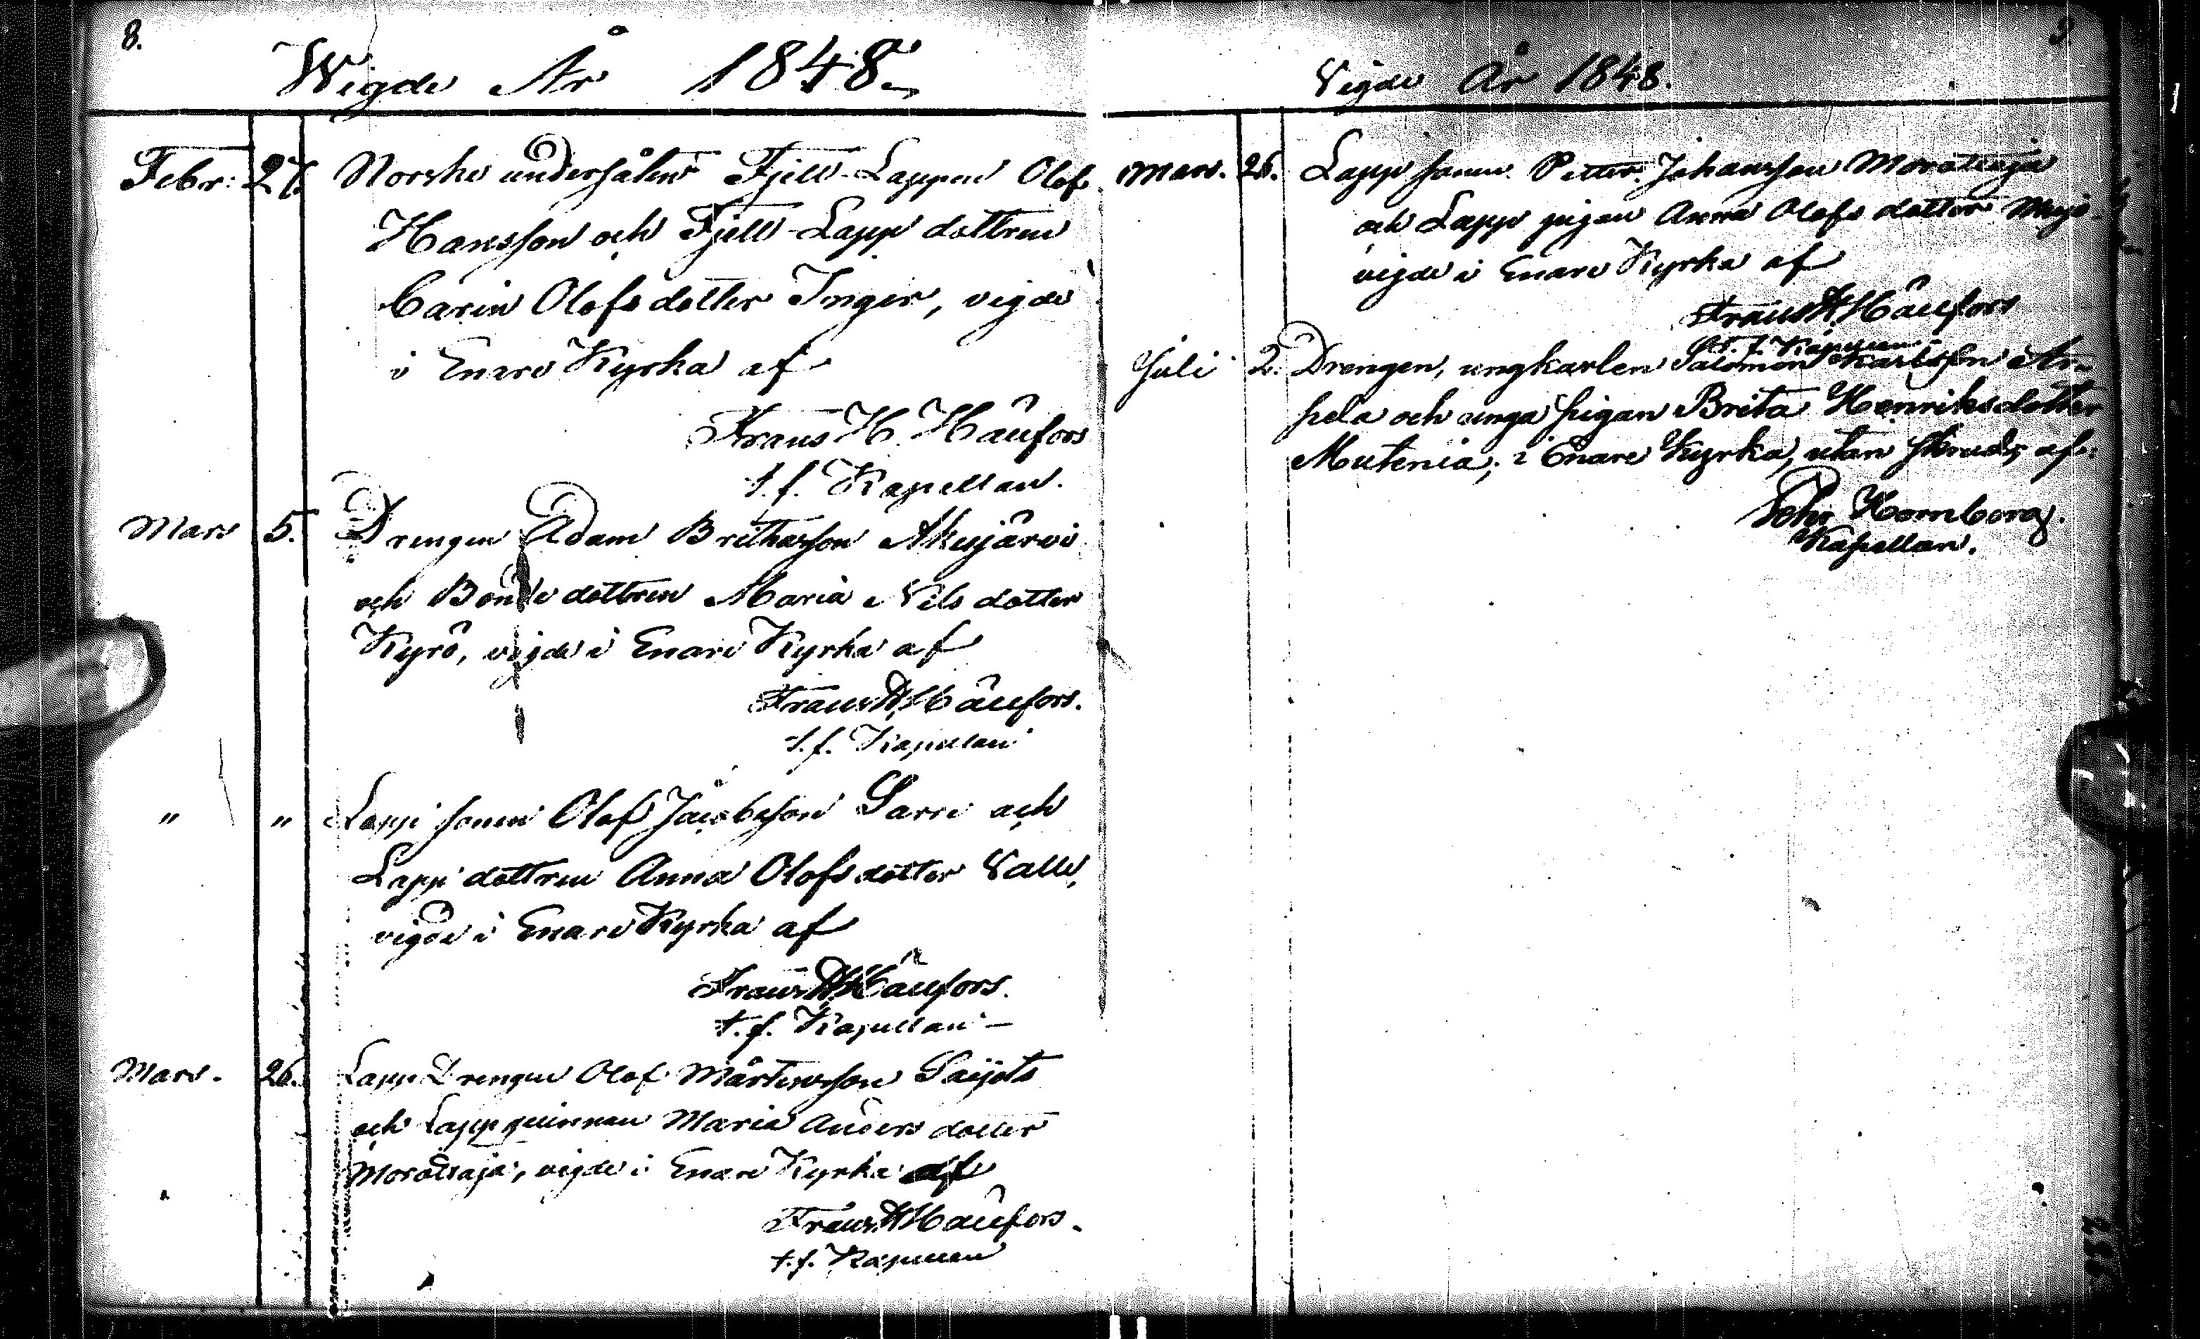 8.
Wigde År 1848.
Febr: 27. Norske undersåten Fjell-Lappen Olof
Hansson och Fjell-Lapp dottren
Carin Olofsdotter Inger, vigde
i Enare Kyrka af
Frans H. Häufors
t.f. Kapellan.
Mars 5. Drengen Adam Akujärvi
och Bonde dottren Maria Nils dotter
Kyrö, vigde i Enare Kyrka af
Frans H. Häufors.
t.f. Kapellan
" " Lapp sonen Olof Jacobsson Sarre och
Lapp dottren Anna Olofsdotter Valle,
vigde i Enare Kyrka af
Frans H. Häufors.
t.f. Kapellan –
Mars. 26. Lapp Drengen Olof Mårtensson
och Lapp quinnan Maria Anders dotter
Morottaja, vigde i Enare Kyrka af
Frans H. Häufors.
t.f. Kapellan
9
Vigde År 1848.
Mars. 26. Lapp sonen Petter Johansson Morottaja
och Lapp pigan Anna Olofs dotter
vigde i Enare Kyrka af
Frans H. Häufors
t.f. Kapellan
Juli 2. Drengen, ungkarlen Salomon Karlsson Ar-
pela och unga pigan Brita Henriksdotter
Mutenia; i Enare Kyrka, utan skrud; af:
Joh. Hornborg.
Kapellan.